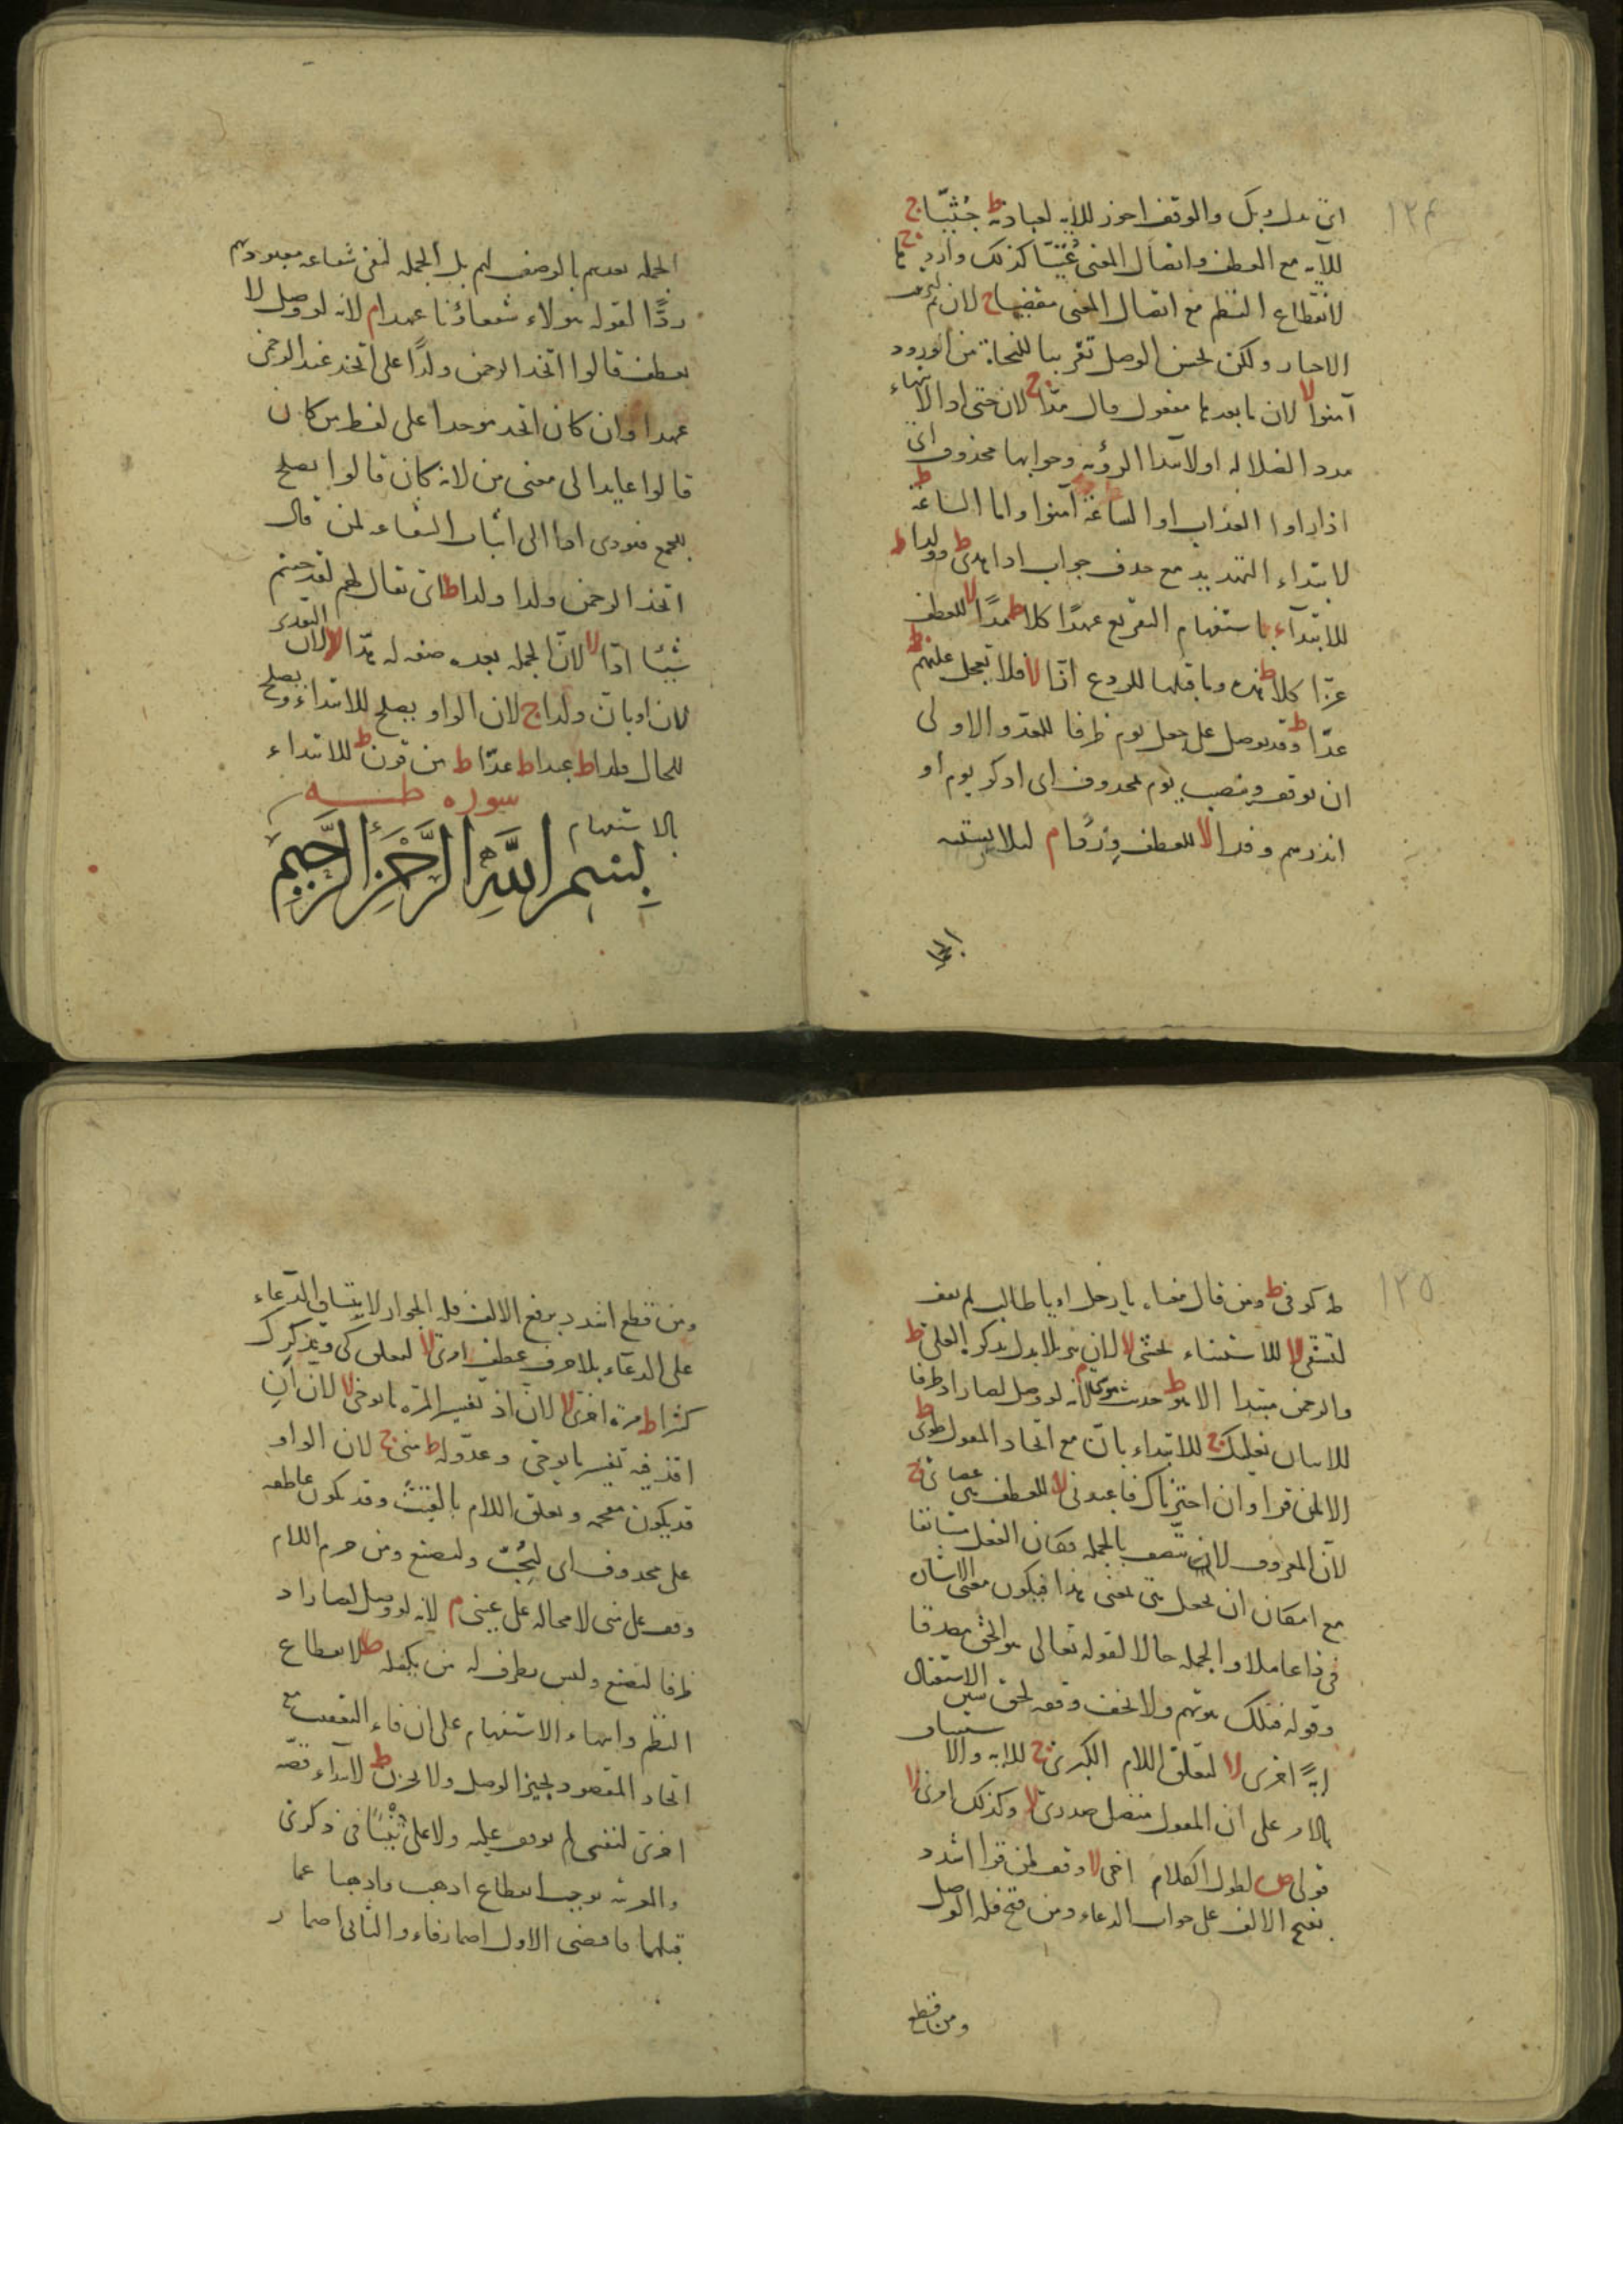 ١٢٤
ان بدل ربك والوقف اجوز للآية لعبادته ط جثيا ج
للآية مع العطف واتصال المعنى عتيا كذلك واردها ج
لانقطاع النظم مع اتصال المعنى مقضيا ج لان ثم لترتيب
الاخبار ولكن يحسن الوصل تقريبا للنجاة من الورود
آمنوا لا لان ما بعدها مفعول قال مدا ج لان حتى اذا لانتهاء
مدد الضلالة او لابتدا الرؤية وجوابها محذوف اى
اذا راوا العذاب او الساعة آمنوا واما الساعة ط
لابتداء التهديد مع حذف جواب اذا هدى ط وولدا ط
للابتداء باستفهام التقريع عهدا كلا ط مدا لا للعطف
عزا كلا ط هذه وما قبلها للردع ازا لا فلا تعجل عليهم ط
عدا ط وقد يوصل على جعل يوم ظرفا للعد والاولى
ان يوقف وينصب يوم بمحذوف اى اذكر يوم او
انذرهم وفدا لا للعطف وردا م لئلا يشتبه
الجملة
الجملة بعدهم بالوصف لهم بل الجملة لنفى شفاعة معبودهم
ردا لقوله هولاء شفعاؤنا عهدا م لانه لو وصل لا
نعطف قالوا اتخذ الرحمن ولدا على اتخذ عند الرحمن
عهدا وان كان اتخذ موحدا على لفظ من كان
قالوا عايدا الى معنى من لانه كان قالوا يصلح
للجمع فيودى اما الى اثبات الشفاعة لمن قال
اتخذ الرحمن ولدا ولدا ط اى يقال لهم لقد جئتم
شيئا ادا لا لان الجملة بعده صفة له هدا لا لان التقدير
لان او بان ولدا ج لان الواو يصلح للابتداء ويصلح
للحال ولدا ط عبدا ط عدا ط من قرن ط للابتداء
بالاستفهام
سوره طه
بسم الله الرحمن الرحيم
١٢٥
طه كوفى ط ومن قال معناه يا رجل او يا طالب لم يقف
لتشقى لا للاستثناء يخشى لا لان تنزيلا بدل تذكرة العلى ط
والرحمن مبتدا الا هو ط حديث موسى م لانه لو وصل لصار اذ ظرفا
للاتيان نعليك ج للابتداء بان مع اتحاد المقول طوى ط
الا لمن قرا وان اخترناك فاعبدنى لا للعطف هى عصاى ج
لان المعروف لا يتصف بالجملة فكان الفعل مستانفا
مع امكان ان يجعل هى بمعنى هذا فيكون معنى الاشارة
فى ذا عاملا والجملة حالا لقوله تعالى هو الحق مصدقا
وقوله فتلك بيوتهم ولا تخف وقفة لحق سين الاستقبال
آية اخرى لا لتعلق اللام الكبرى ج للاية والا
بالامر على ان المقول متصل صدرى لا وكذلك امرى لا
قولى ص لطول الكلام اخى لا وقف لمن قرا اشدد
بفتح الالف على جواب الدعاء ومن فتح فله الوصل
ومن قطع
ومن قطع اشدد برفع الالف فله الجواز لا يتساق الدعاء
على الدعاء بلا حرف عطف امرى لا لتعلق كى ونذكرك
كثيرا ط مرة اخرى لا لان اذ تفسير المرة ما يوحى لا لان ان
اقذفيه تفسير ما يوحى وعدو له ط منى ج لان الواو
قد يكون مقحمة وتعلق اللام بالقيت وقد يكون عاطفة
على محذوف اى لتحب ولتصنع ومن جزم اللام
وقف على منى لا محالة على عينى م لانه لو وصل لصار اذ
ظرفا لتصنع وليس بظرف له من يكفله ط لانقطاع
النظم وانتهاء الاستفهام على ان فاء التعقيب مع
اتحاد المقصود يجيز الوصل ولا تحزن ط لابتداء قصة
اخرى لنفسى لم يوقف عليه ولا على تنيا فى ذكرى
قبلهما فاقتضى الاول اضمار فاء والثانى اضمار